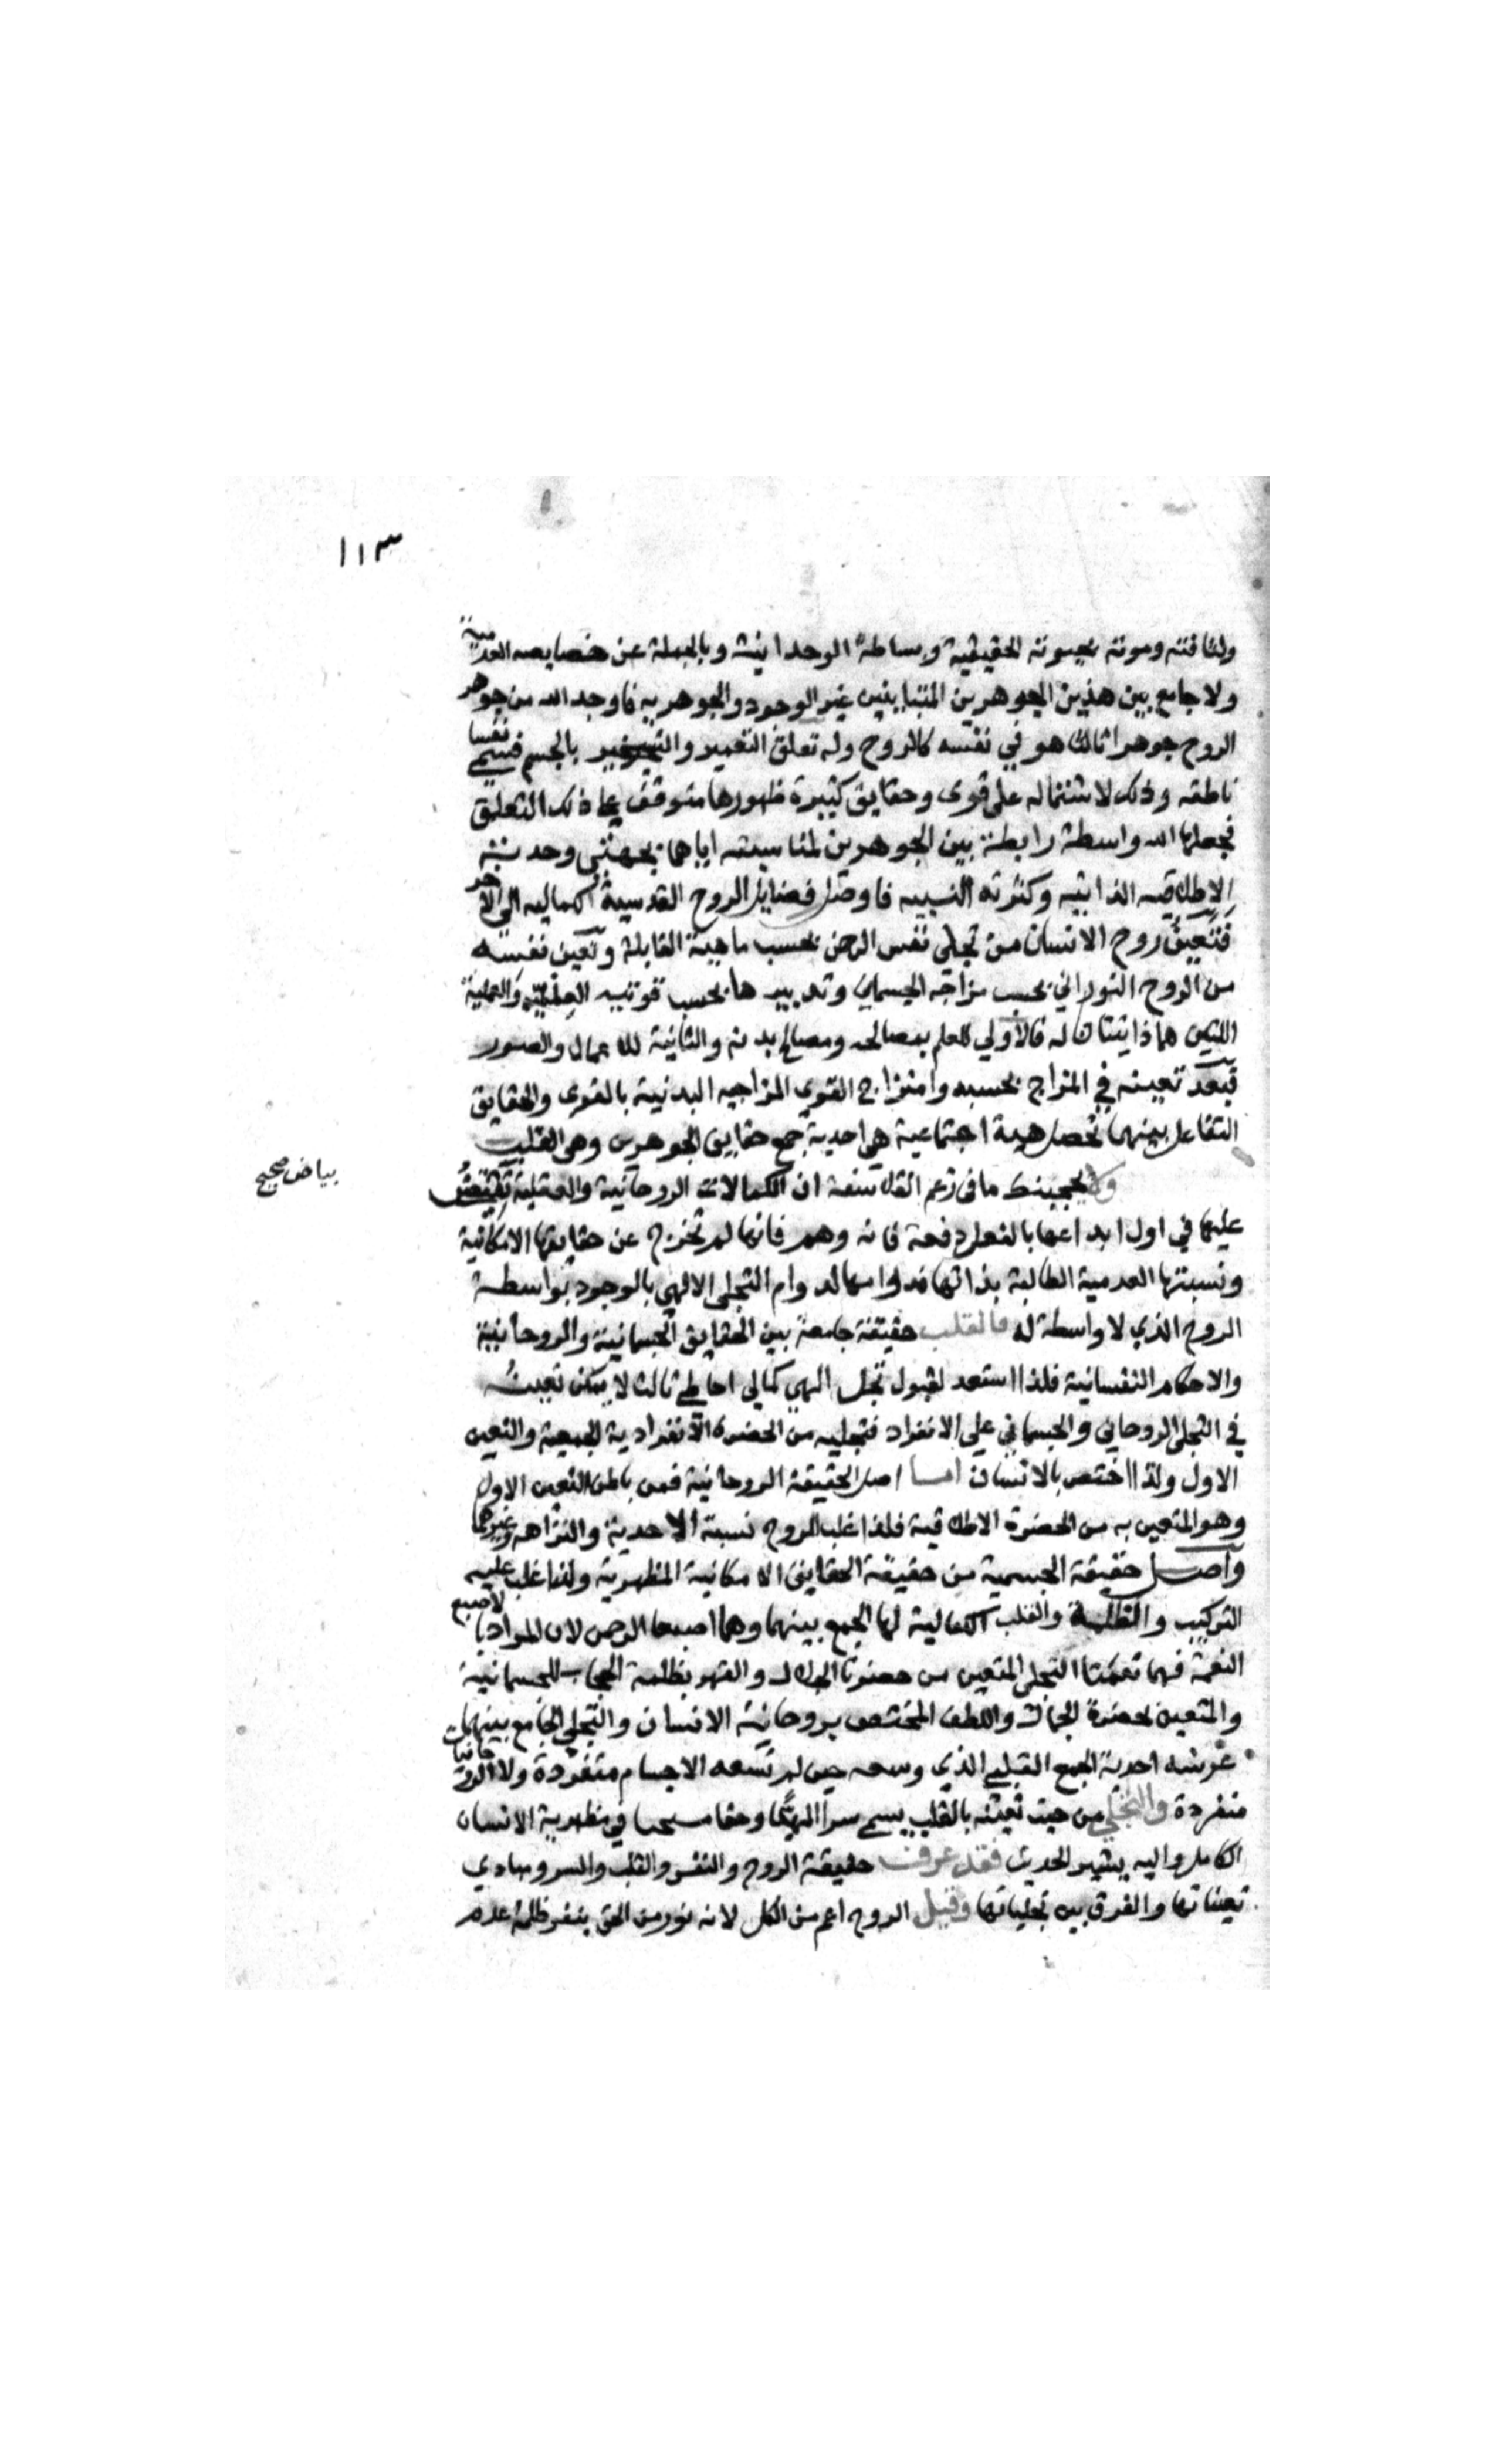 ١١٣
ولثافته وموته بحيوته الحقيقية وبساطة الوحدانيته وبالجملة عن خصايصه العدمية
ولا جامع بين هذين الجوهرين المتباينين غير الوجود والجوهريه فاوجد الله من جوهر
الروح جوهرا ثالثا هو في نفسه كالروح وله تعلق التعمير والتسخير بالجسم فيسمى نفسا
ناطقه وذلك لاشتماله على قوى وحقايق كثيرة ظهورها متوقف على ذلك التعلق
فجعلها الله واسطة رابطة بين الجوهرين لمناسبته اياهما بجهتى وحدتيته
الاطلاقيه الذاتيه وكثرته النسبيه فاوصل فضايل الروح القدسية الكماليه الى الآخر
فتعين روح الانسان من تجلى نفس الرحمن بحسب ماهيته القابلة وتعين نفسه
من الروح النوراني بحسب مزاجه الجسماني وتدبيرها بحسب قوتيه العلمية والعملية
اللتين هما ذاتيتان له فالأولى للعلم بمصالحه ومصالح بدنه والثانية للاعمال والصور
فبعد تعينه في المزاج بحسبه وامتزاج القوى المزاجيه البدنية بالقوى والحقايق
التفاعل بينهما تحصل هيئة اجتماعية هي احدية جمع حقايق الجوهرين وهى القلب
ولا يحجبنك ما في زعم الفلاسفة ان الكمالات الروحانية والعقلية تفيض
بياض صحيح
عليها في اول ابداعها بالفعل دفعة فانه وهم فانها لم تخرج عن حقايقها الامكانية
ونسبتها العدمية الطالبة بذاتها دوام التجلى الالهي بالوجود بواسطة
الروح الذي لا واسطة له فالقلب حقيقة جامعة بين الحقايق الجسمانية والروحانية
والاحكام النفسانية فلذا استعد لقبول تجل الهي كمالي احاطي ثالث لا يمكن تعينه
في التجلى الروحاني والجسماني على الانفراد فتجليه من الحضرة الانفرادية الجمعية والتعين
الاول ولذا اختص بالانسان اما اصل الحقيقة الروحانية فمن باطن التعين الاول
وهو المتعين به من الحضرة الاطلاقية فلذا غلب الروح نسبة الاحدية والنزاهة وغيرهما
واصل حقيقة الجسمية من حقيقة الحقايق الامكانية المظهرية ولذا غلب عليه
التركيب والظلمة والقلب الكمالية لها الجمع بينهما وهما اصبعا الرحمن لان المراد بالاصبع
النعمة فهما نعمتا التجلى المتعين من حضرتا الجلال والقهر بظلمة الحجاب للجسمانية
والمتعين بحضرة الجمال واللطف المختص بروحانية الانسان والتجلى الجامع بينهما
عرشه احدية الجمع القلبي الذي وسعه حين لم تسعه الاجسام متفردة ولا الروحانيات
منفردة والتجلي من حيث تعينه بالقلب يسمى سرا الهيا وحقا في مظهرية الانسان
الكامل واليه يشير الحديث فقد عرفت حقيقة الروح والنفس والقلب والسر ومبادي
تعيناتها والفرق بين تجلياتها وقيل الروح اعم من الكل لانه نور من الحق ينفر ظلمة عدم